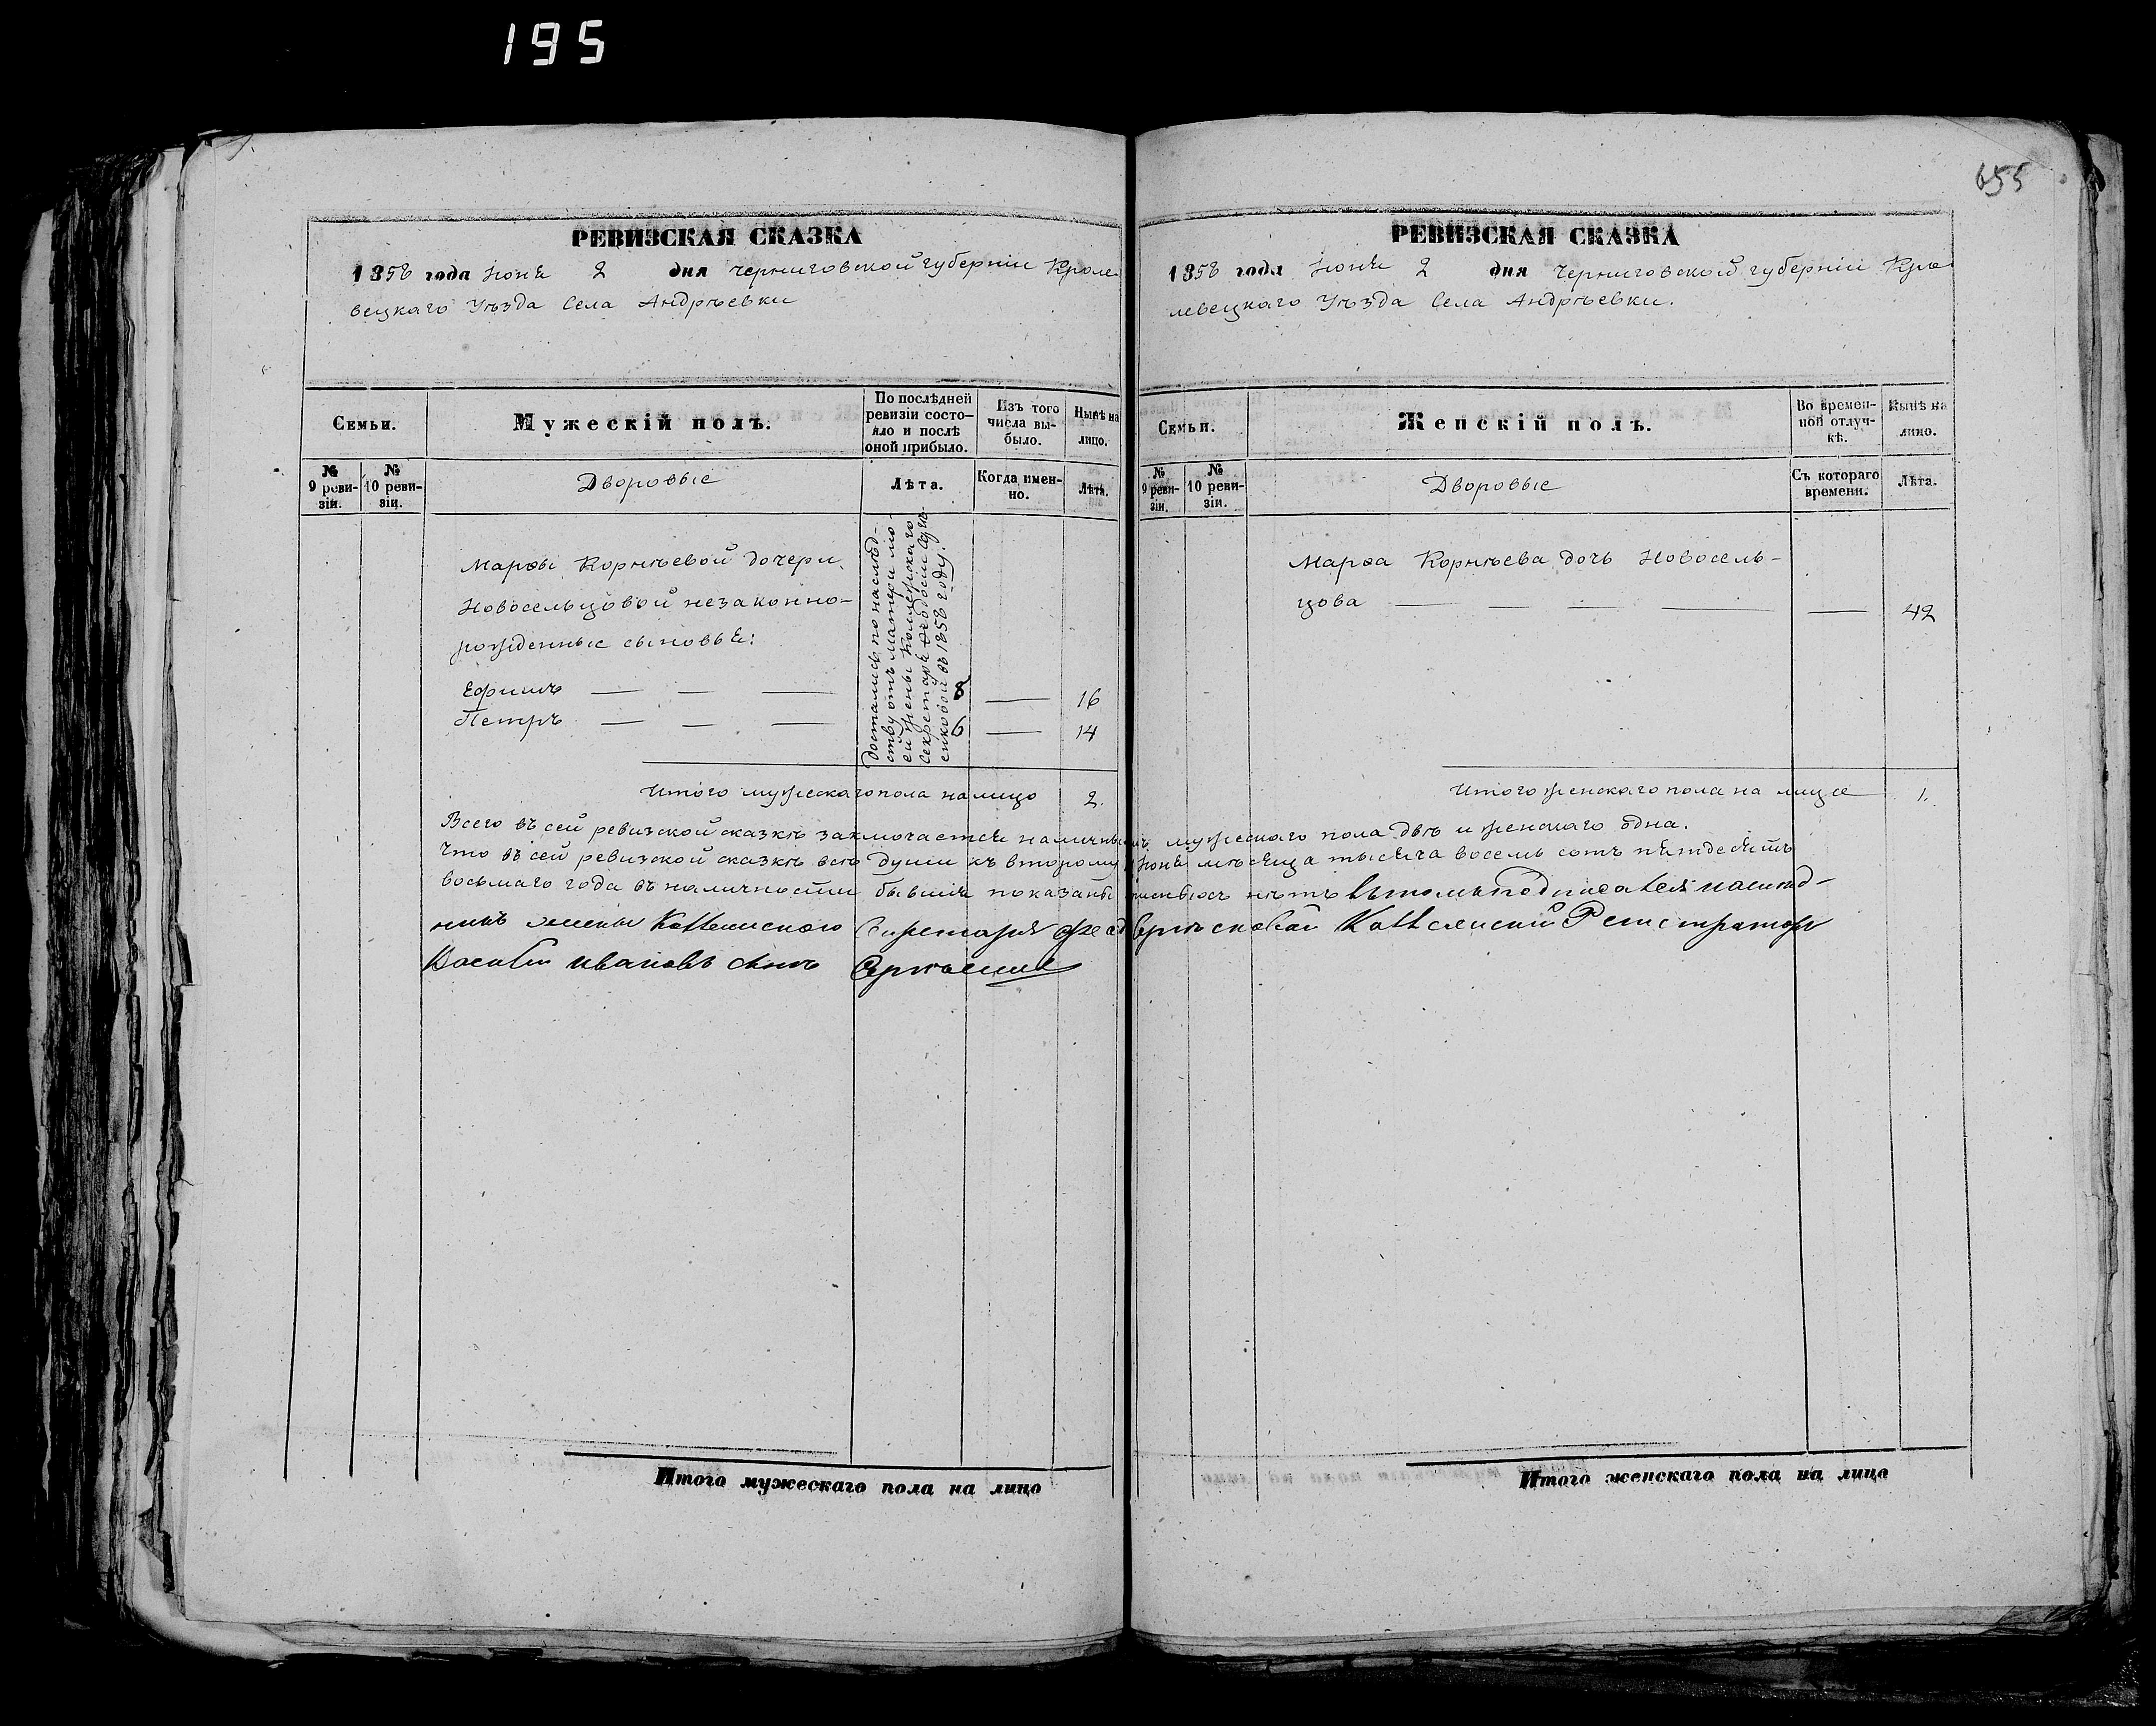 195
655
РЕВИЗСКАЯ СКАЗКА
1858 года Іюня 2 дня Черниговской губерніи Кроле
вецкаго Уѣзда Села Андрѣевки
Семьи.
Мужескій полъ.
По послѣдней
ревизіи состо-
яло и послѣ
оной прибыло.
Изъ того
числа вы-
было.
Нынѣ на
лицо.
№
9 реви-
зіи.
№
10 реви-
зіи.
Дворовые
Лѣта.
Когда имен-
но.
Лѣта.
Марѳы Корнѣевой дочери
Новосельцовой незаконно-
рожденные сыновья:
Ефимъ — — — 8 — 16
Петръ — — — 6 — 14
Достались по наслѣд-
ству отъ матери мо-
ей жены Коллежскаго
Секретаря Ѳеодосіи
въ 1858 году.
Итого мужескаго пола на лицо 2.
РЕВИЗСКАЯ СКАЗКА
1858 года Іюня 2 дня Черниговской губерніи Кро
левецкаго Уѣзда Села Андрѣевки.
Семьи.
Женскій полъ.
Во времен-
ной отлуч-
кѣ.
Нынѣ на
лицо.
№
9 реви-
зіи.
№
10 реви-
зіи.
Дворовые
Съ котораго
времени.
Лѣта.
Марѳа Корнѣева дочь Новосель-
цова — — — — — 42
Итого женскаго пола на лице 1.
Всего въ сей ревизской сказкѣ заключается наличныхъ мужескаго пола двѣ и женскаго одна.
Что въ сей ревизской сказкѣ всѣ души къ второму Іюня мѣсяца тысяча восемь сотъ пятьдесятъ
восьмаго года въ наличности бывшія показаны и нѣтъ въ томъ подписался наслѣд-
никъ жены Коллежского Секретаря Коллежский Регистраторъ
Василий Ивановъ сынъ
Итого мужескаго пола на лицо
Итого женскаго пола на лицо